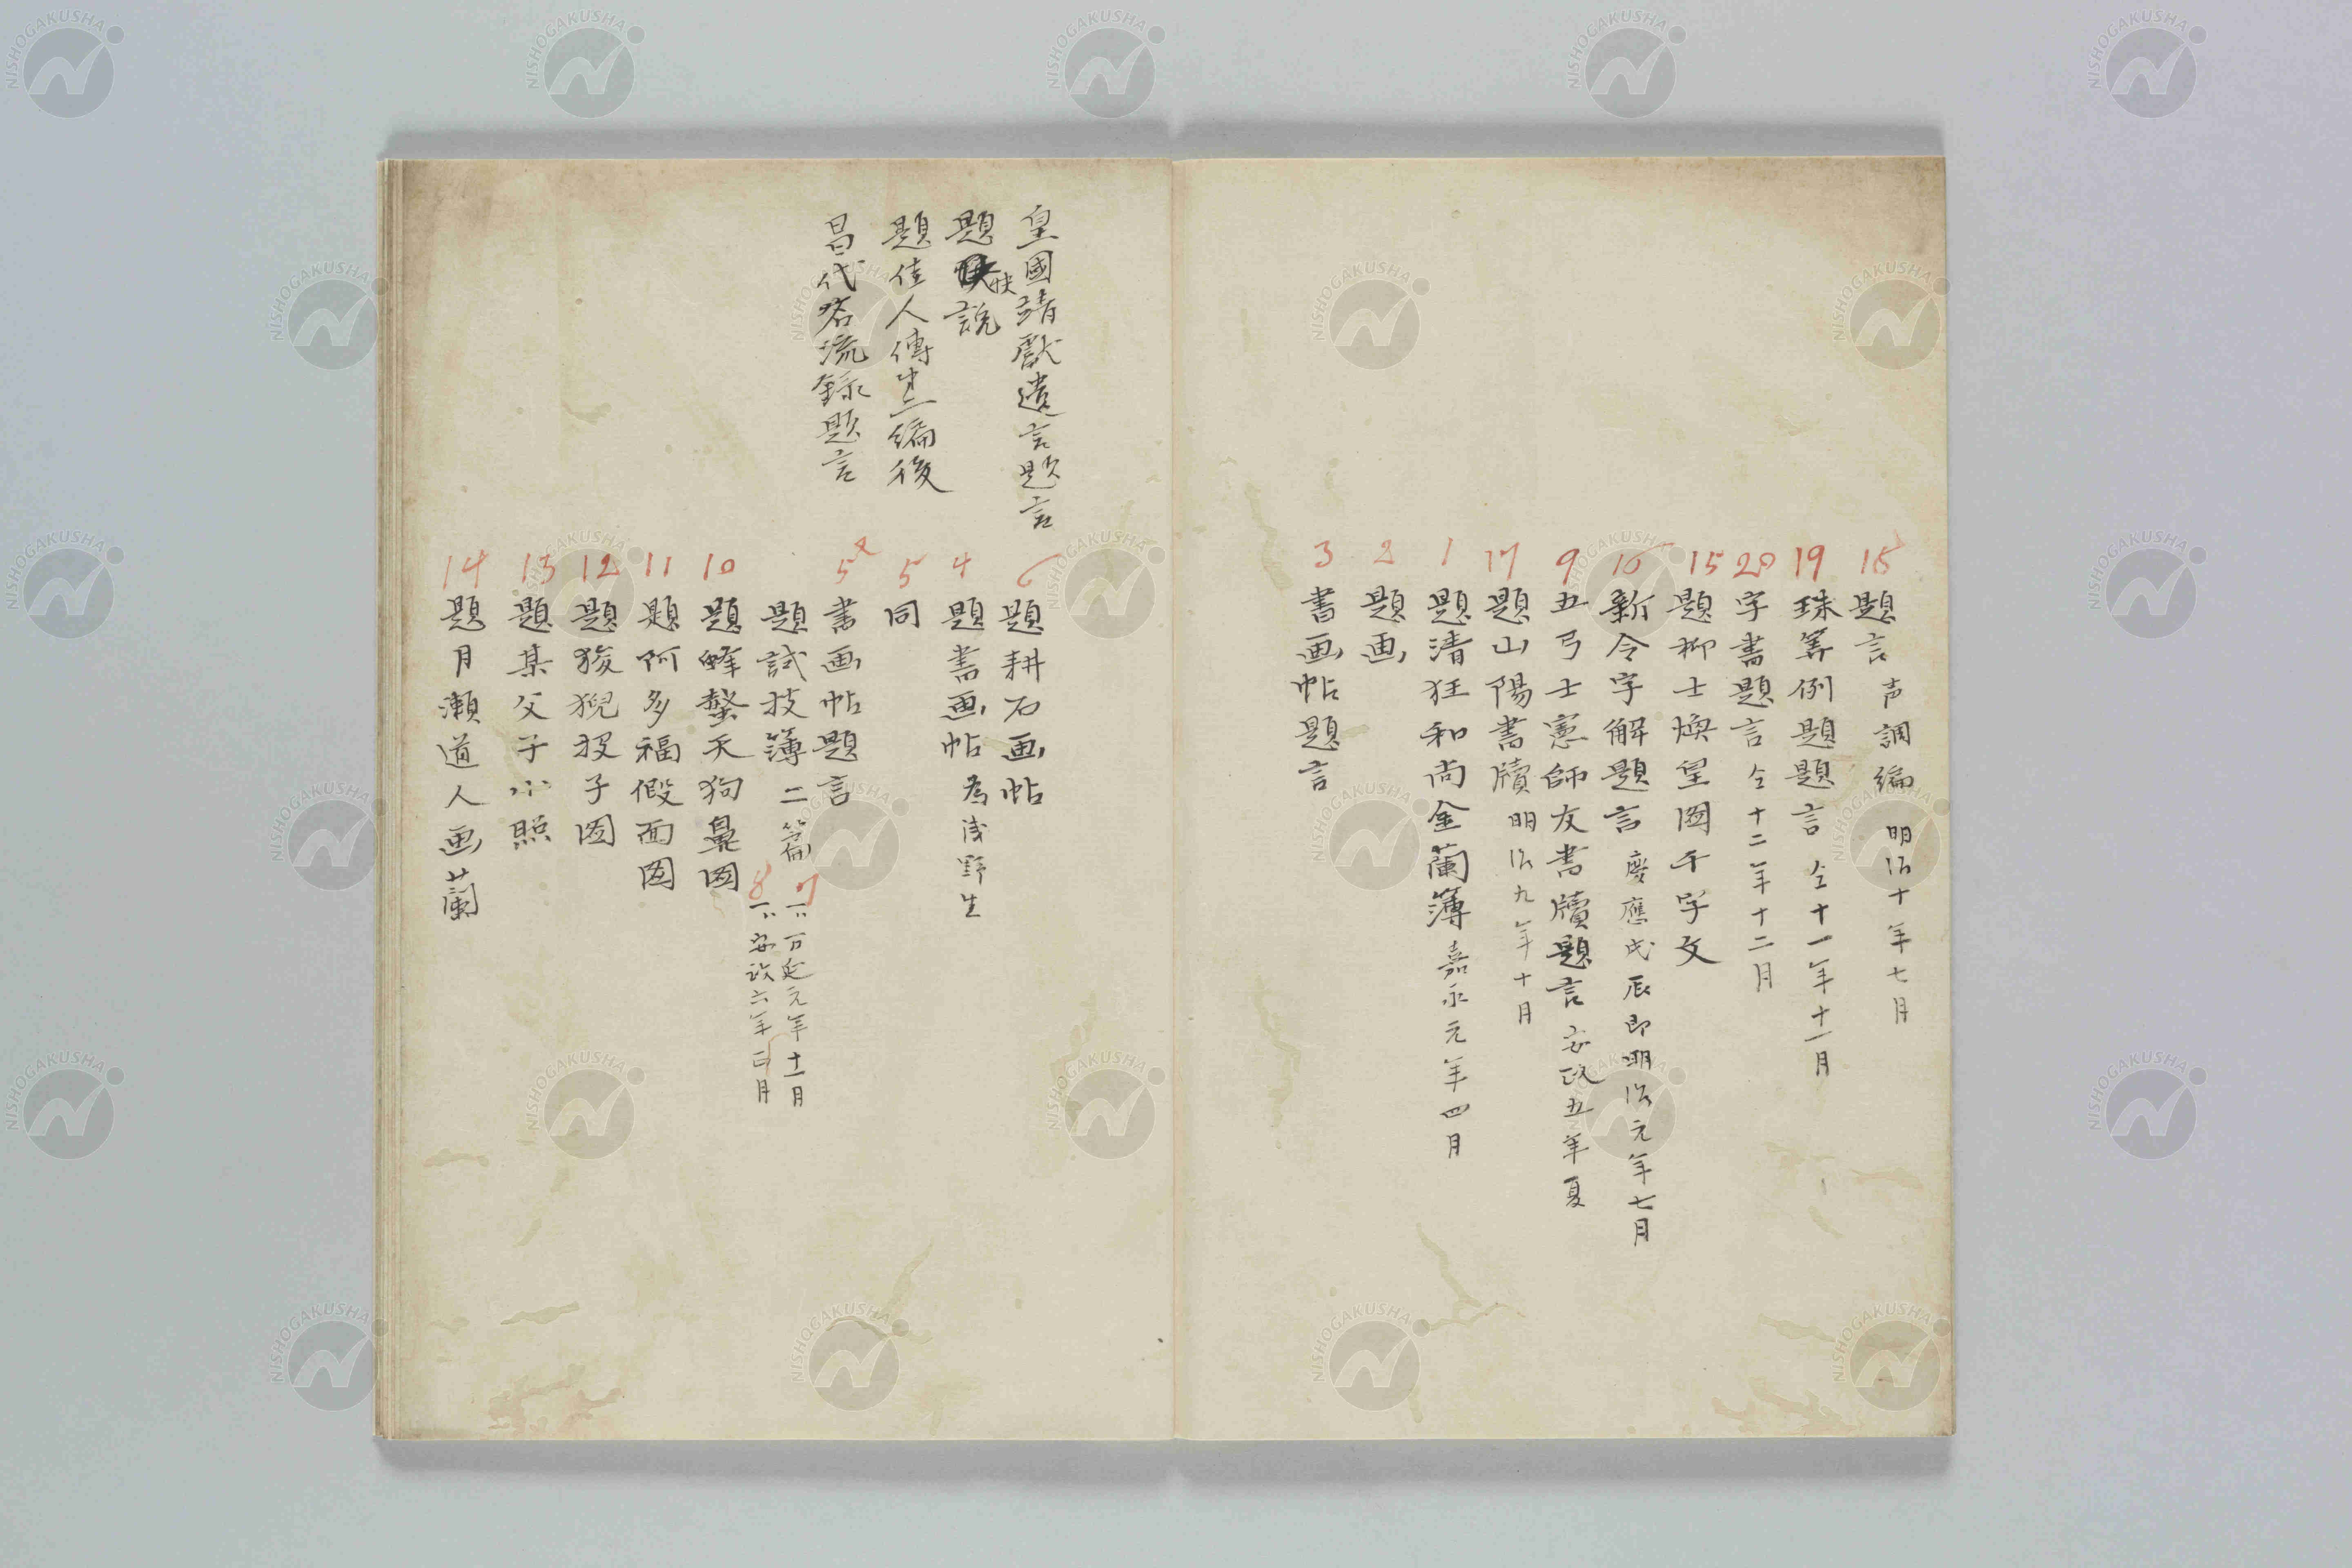 18 題言 声調編 明治十年七月
19 珠算例題題言 仝十一年十一月
20 字書題言 仝十二年十二月
15 題柳士煥皇國千字文
16 新令字解題言 慶應戊辰即明治元年七月
9 五弓士憲師友書牘題言 安政五年夏
17 題山陽書牘 明治九年十月
1 題清狂和尚金蘭簿 嘉永元年四月
2 題画
3 書画帖題言
皇國靖獻遺言題言
題快說
題佳人傳第二編後
昌代名流録題言
6 題耕石画帖
4 題書画帖 為浅野生
5 同
5 書画帖題言
題試技簿 二篇
7 一ハ万延元年十一月
8 一ハ安政六年正月
10 題蜂螫天狗鼻図
11 題阿多福假面図
12 題狻猊投子図
13 題某父子小照
14 題月瀬道人画蘭
NISHOGAKUSHA